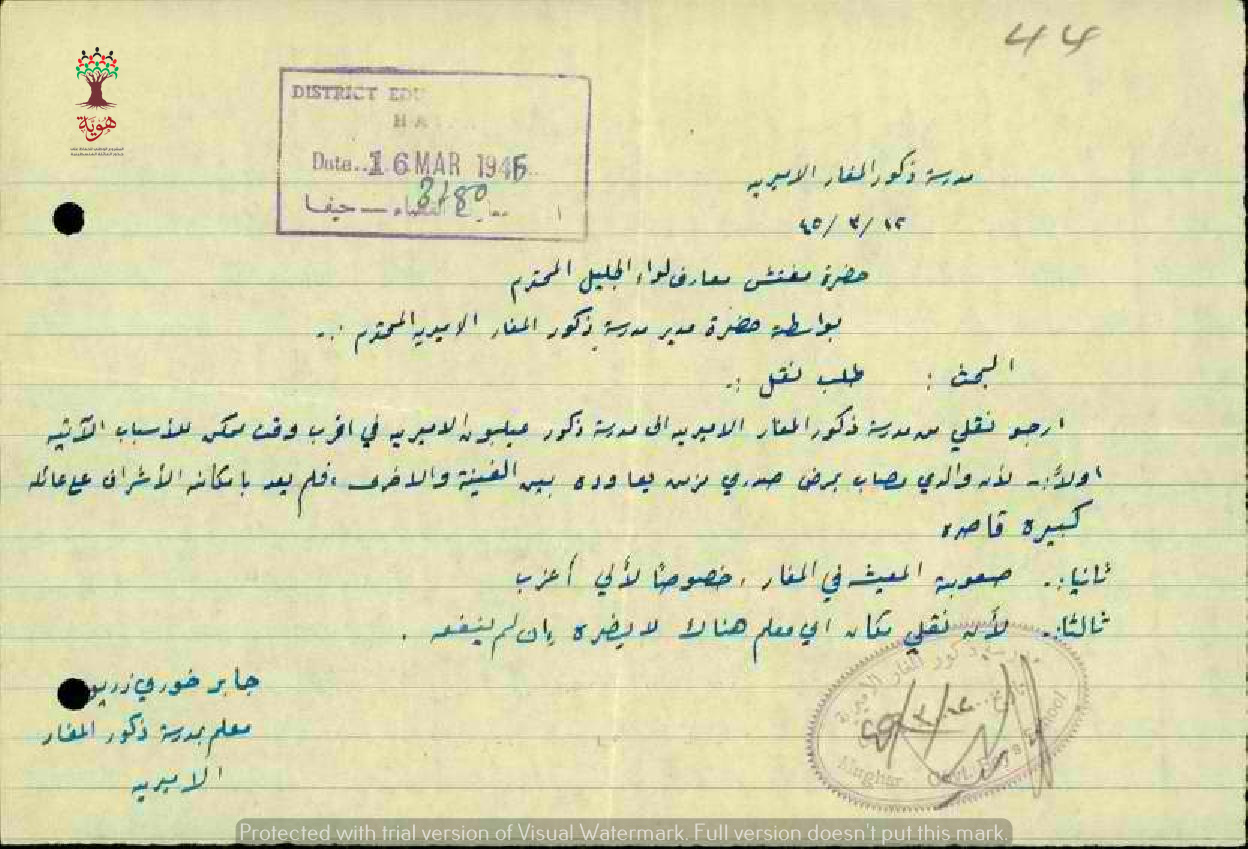 44
هوية
DISTRICT EDU
HA
Date.. 16 MAR 1945
3180
معارف القضاء — حيفا
مدرسة ذكور المغار الاميريه
١٢/ ٣/ ٤٥
حضرة مفتش معارف لواء الجليل المحترم
بواسطة حضرة مدير مدرسة ذكور المغار الاميريه المحترم :-
البحث : طلب نقل :-
ارجو نقلي من مدرسة ذكور المغار الاميريه الى مدرسة ذكور عيلبون الاميريه في اقرب وقت ممكن للأسباب الآتيه
اولاً :- لأن والدي مصاب بمرض صدري مزمن يعاوده بين الفينة والاخرى ، فلم يعد بامكانه الأشراف على عائله
كبيرة قاصره
ثانيا :- صعوبة المعيشه في المغار ، خصوصًا لأني أعزب
ثالثا :- لأن نقلي مكان اي معلم هناك لا يضره وان لم ينفعه .
جابر خوري زريق
معلم بمدرسة ذكور المغار
الاميريه
مدرسة ذكور المغار الاميرية
Mughar Govt. Boys School
Protected with trial version of Visual Watermark. Full version doesn't put this mark.